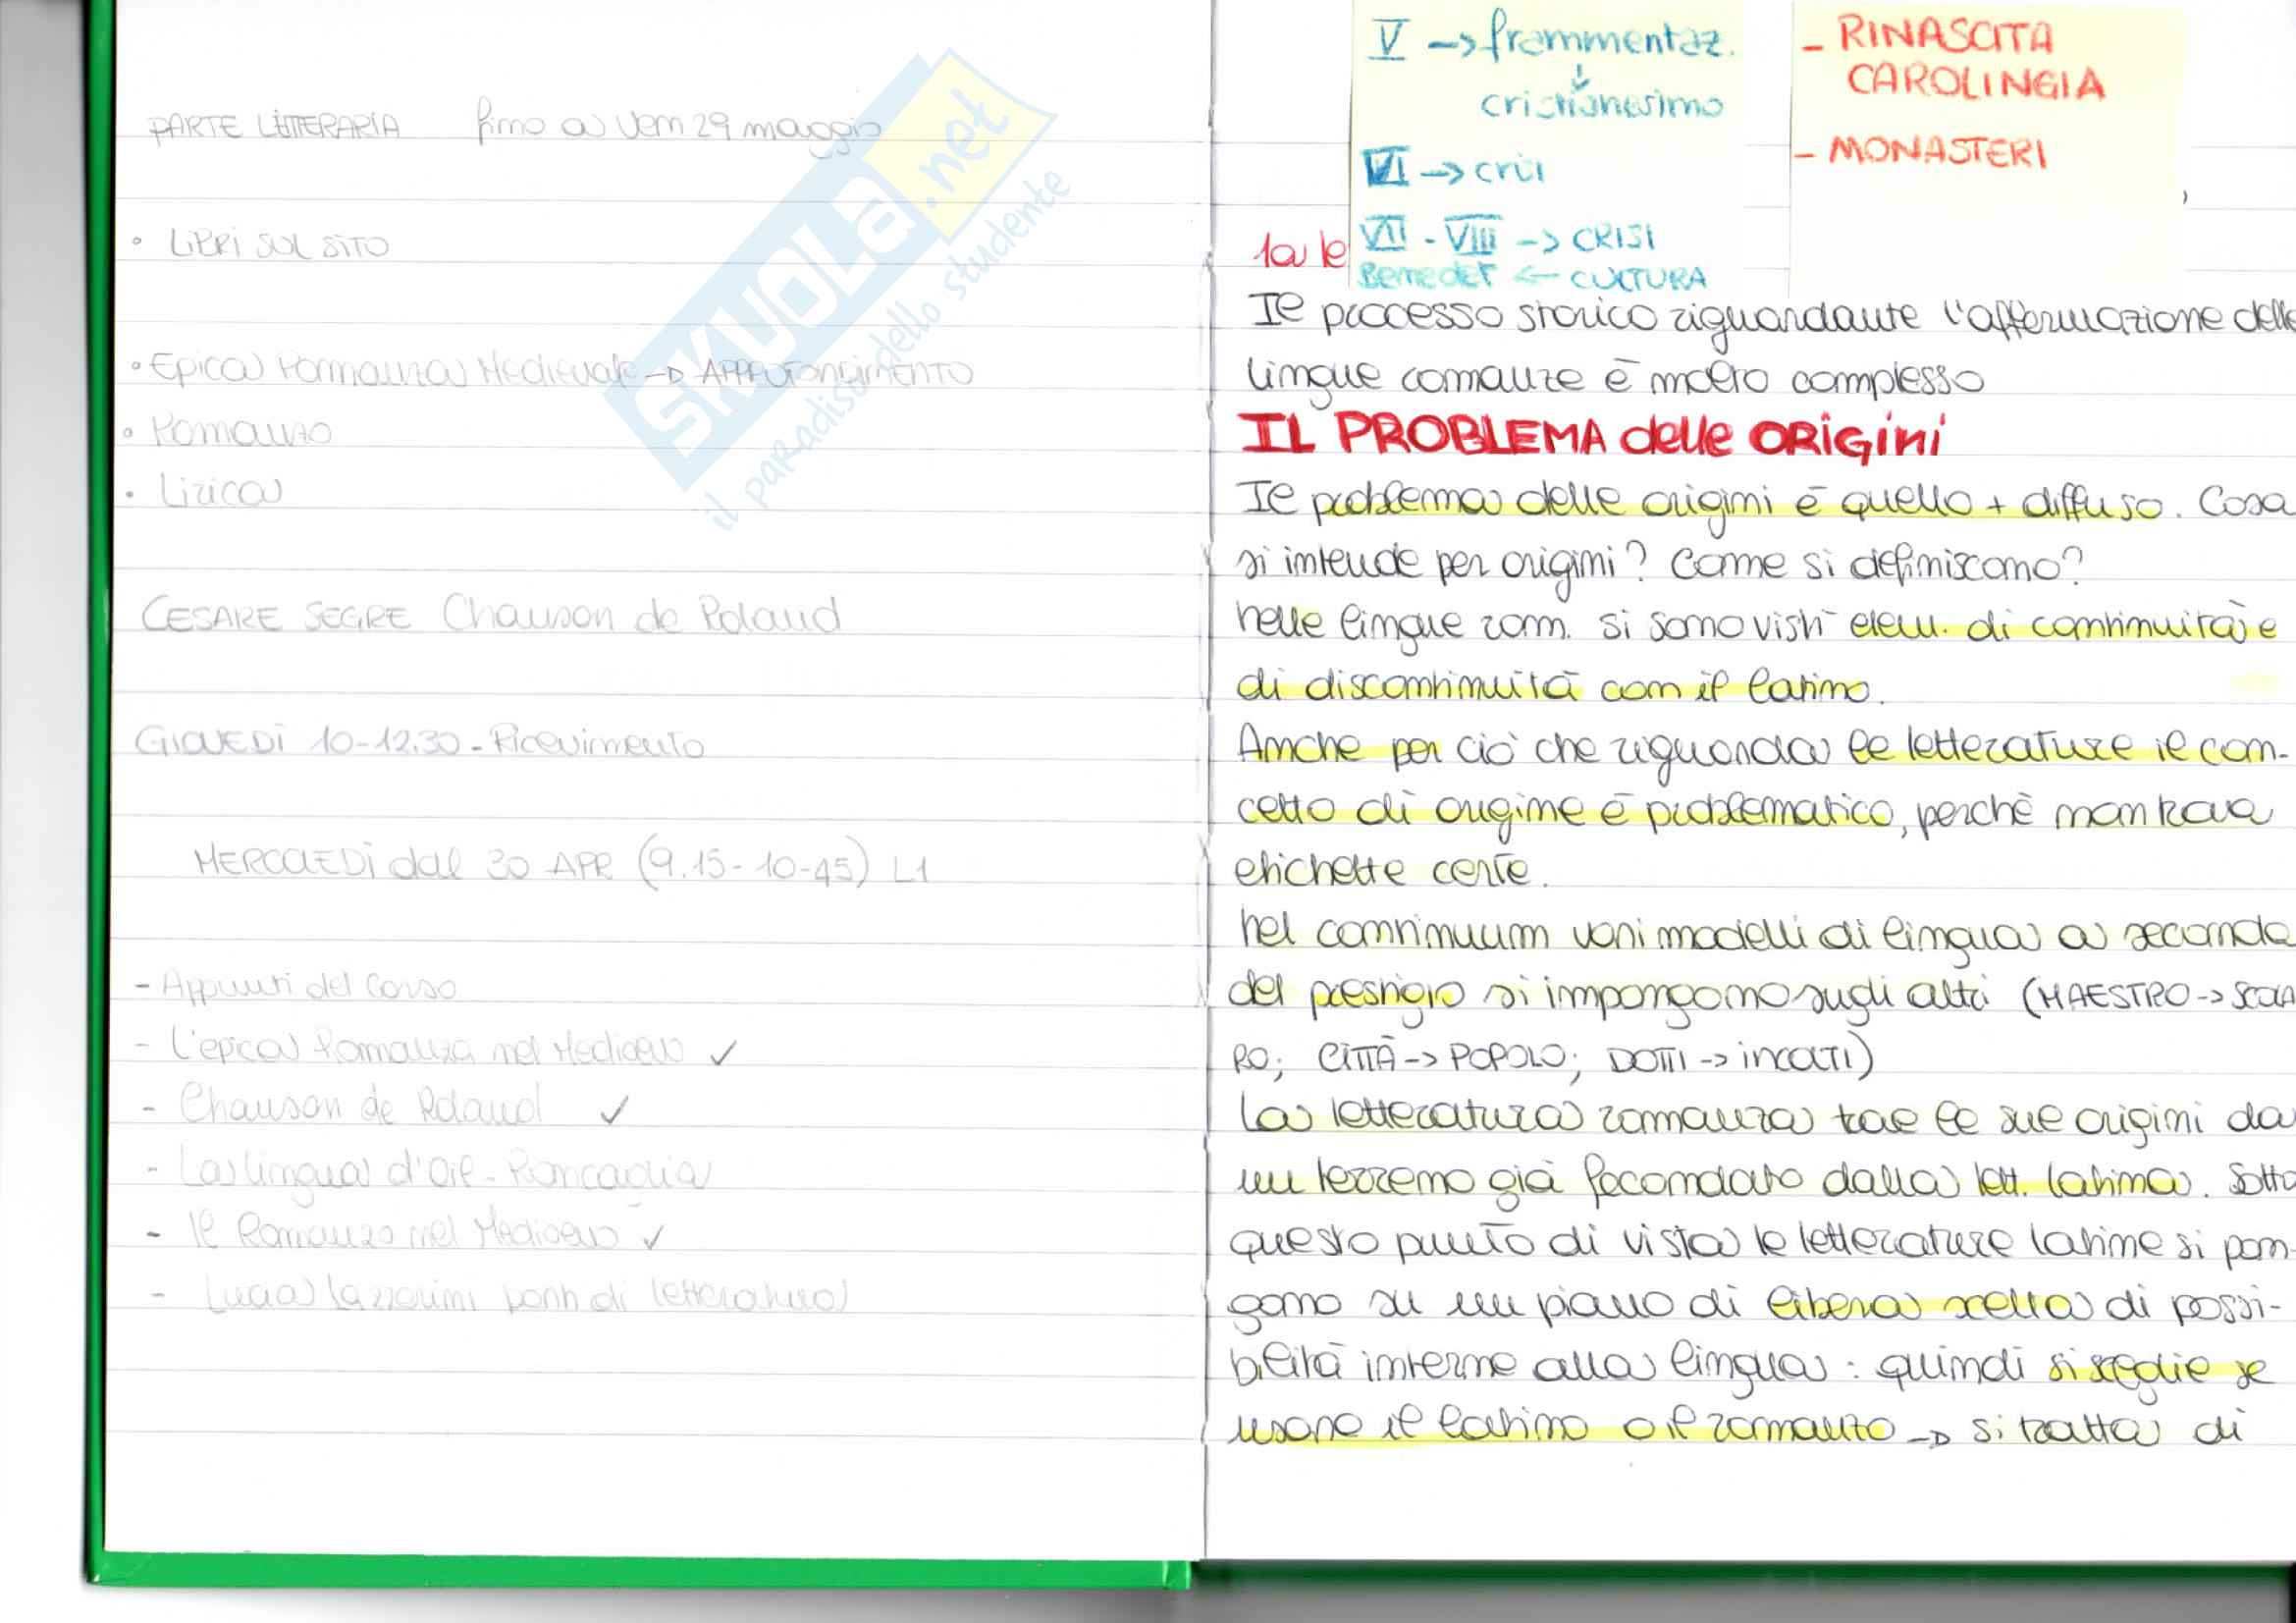 PARTE LETTERARIA fino a ven 29 maggio
• LIBRI SUL SITO
• Epica Romanza Medievale -> APPROFONDIMENTO
• Romanzo
• Lirica
CESARE SEGRE Chanson de Roland
GIOVEDÌ 10-12.30 - Ricevimento
MERCOLEDÌ dal 30 APR (9.15-10-45) L1
- Appunti del Corso
- L'epica Romanza nel Medioevo ✓
- Chanson de Roland ✓
- La lingua d'Oil - Roncaglia
- Il Romanzo nel Medioevo ✓
- Lucia Lazzerini di letteratura
SKUOLA.net
il paradiso dello studente
V -> frammentaz.
↓
cristianesimo
VI -> crisi
VII - VIII -> CRISI
Benedet <- CULTURA
- RINASCITA
CAROLINGIA
- MONASTERI
1a le
Il processo storico riguardante l'affermazione delle
lingue romanze è molto complesso
IL PROBLEMA delle ORIGINI
Il problema delle origini è quello + diffuso. Cosa
si intende per origini? Come si definiscono?
Nelle lingue rom. si sono visti elem. di continuità e
di discontinuità con il latino.
Anche per ciò che riguarda le letterature il con-
cetto di origine è problematico, perchè non trova
etichette certe.
Nel continuum vari modelli di lingua a seconda
del prestigio si impongono sugli altri (MAESTRO -> SCOLA
RO; CITTÀ -> POPOLO; DOTTI -> incolti)
La letteratura romanza trae le sue origini da
un terreno già fecondato dalla lett. latina. Sotto
questo punto di vista le letterature latine si pon-
gono su un piano di libera scelta di possi-
bilità interne alla lingua: quindi si sceglie se
usare il latino o il romanzo -> si tratta di